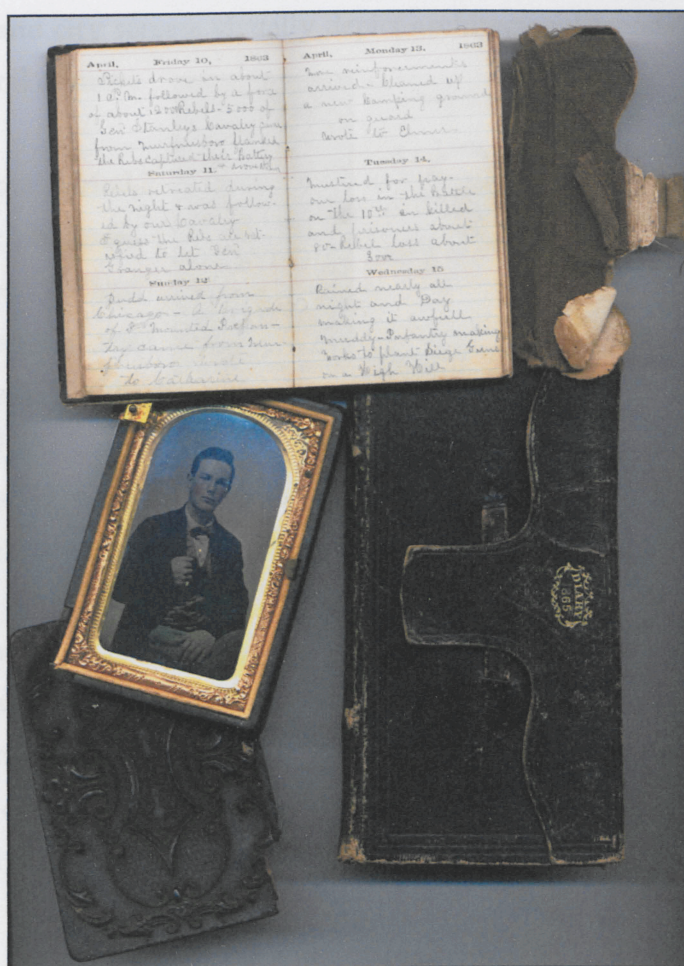 April, Friday 10, 1863
Pickets drove in about
1 P.M. followed by a force
of about 1200 Rebels - 5000 of
Gen Stanley's Cavalry
from Murfreesboro flanked
the Rebs captured their Battery
Saturday 11.
Rebels retreated during
the night & was follow-
ed by our Cavalry
I guess the Rebs are sat-
isfied to let Gen
Granger alone
Sunday 12
Budd arrived from
Chicago - A Brigade
of Mounted Infan-
try came from Mur-
freesboro wrote
to Catharine
April, Monday 13. 1863
reinforcements
arrived - Cleaned up
a new Camping ground
on guard
Wrote to Elmer
Tuesday 14.
Mustered for pay -
our loss in the Battle
on the 10th in killed
and prisoners about
80 - Rebel loss about
300
Wednesday 15
Rained nearly all
night and Day
making it awfull
Muddy - Infantry making
forks to plant Siege Guns
on a High Hill
DIARY
1865